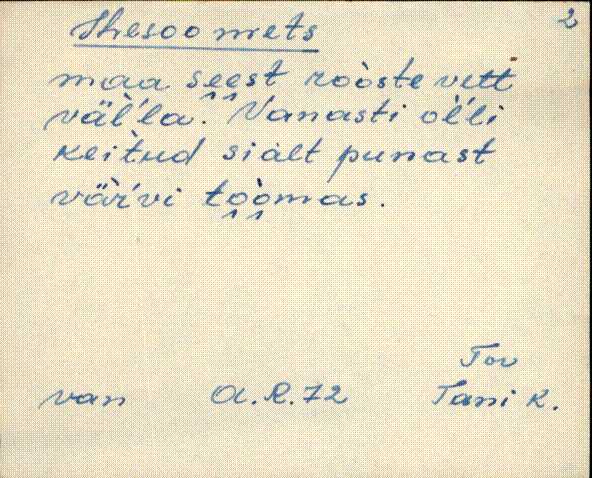 2
Ihesoo mets
maa se̬e̬st roòste vett
väl'la. Vanasti ol'li
keitud sialt punast
vär̀vi to̬o̬mas.
Tov
van A.R.72 Tani K.